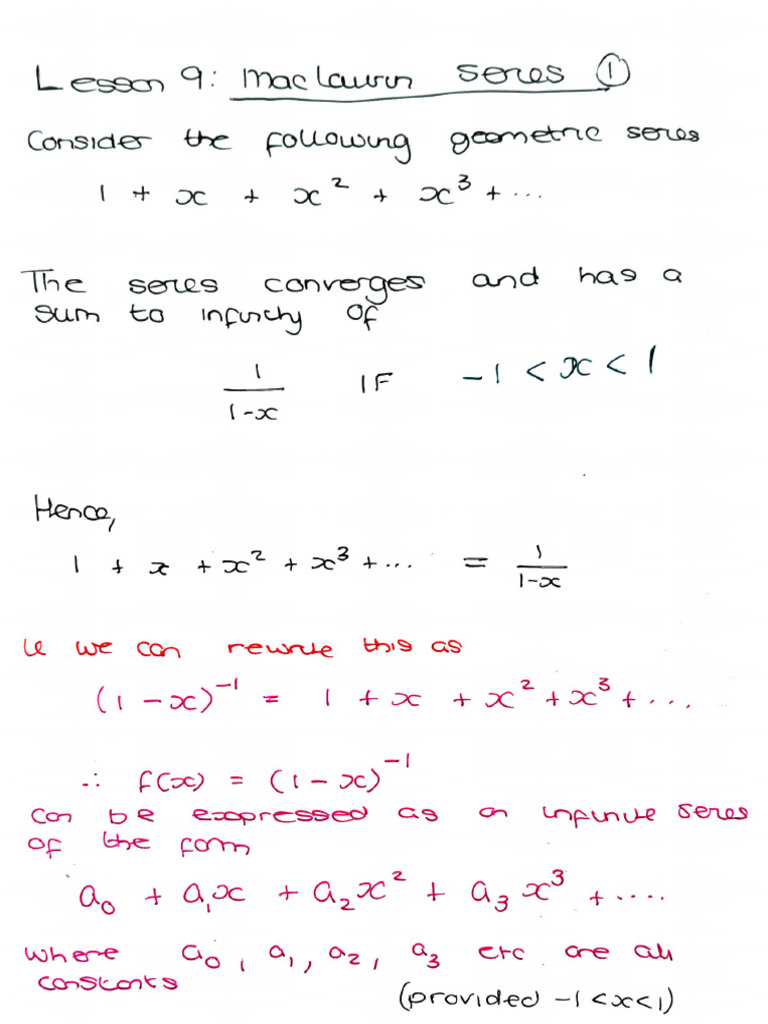 Lesson 9: Maclaurin series ①
Consider the following geometric series
1 + x + x² + x³ + ...
The series converges and has a
sum to infinity of
1/(1-x) IF -1 < x < 1
Hence,
1 + x + x² + x³ + ... = 1/(1-x)
ie we can rewrite this as
(1 - x)⁻¹ = 1 + x + x² + x³ + ...
∴ f(x) = (1 - x)⁻¹
can be expressed as an infinite series
of the form
a₀ + a₁x + a₂x² + a₃x³ + ....
where a₀, a₁, a₂, a₃ etc are all
constants
(provided -1 < x < 1)